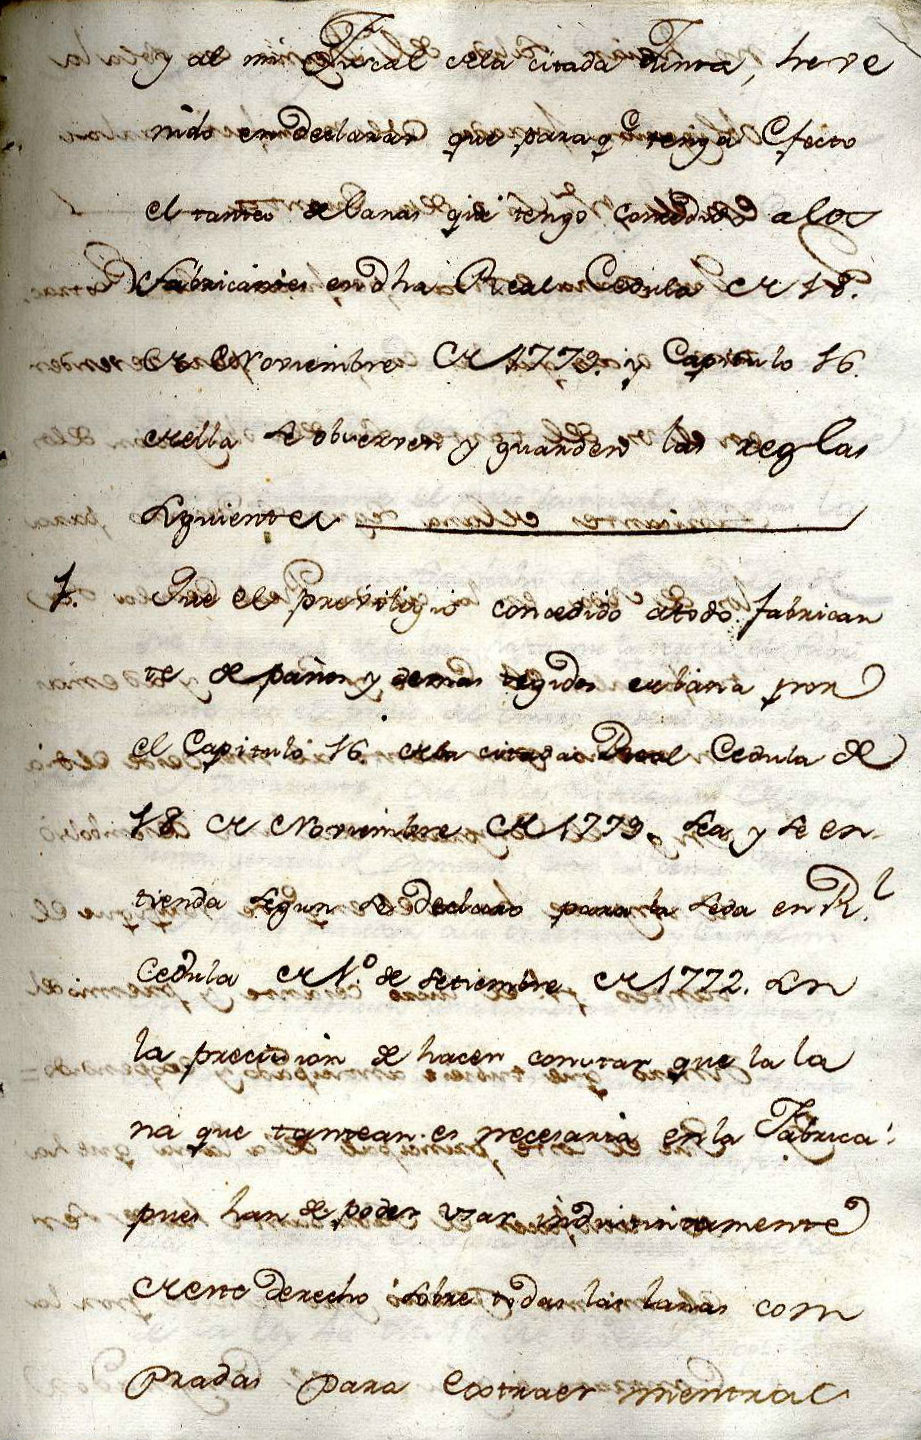 y al mi Fiscal dela citada Junta, he ve
nido en declarar que para q.e tenga efecto
el tanteo de lanas que tengo concedido a los
Fabricantes en dha Real Cedula de 18.
de Noviembre de 1779. y Capitulo 16.
de ella se observen y guarden las reglas
siguientes
1. Que el previlegio concedido atodo fabrican
te de paños y demas tegidos de lana por
el Capitulo 16 dela citada Real Cedula de
18 de Noviembre de 1779. sea, y se en-
tienda segun se declaro para la seda en R.l
Cedula de 1.o de Setiembre de 1772. sin
la precision de hacer constar que la la
na que tantean es necesaria en la Fabrica:
pues han de poder usar indistintamente
de este derecho sobre todas las lanas com
pradas para extraer mientras